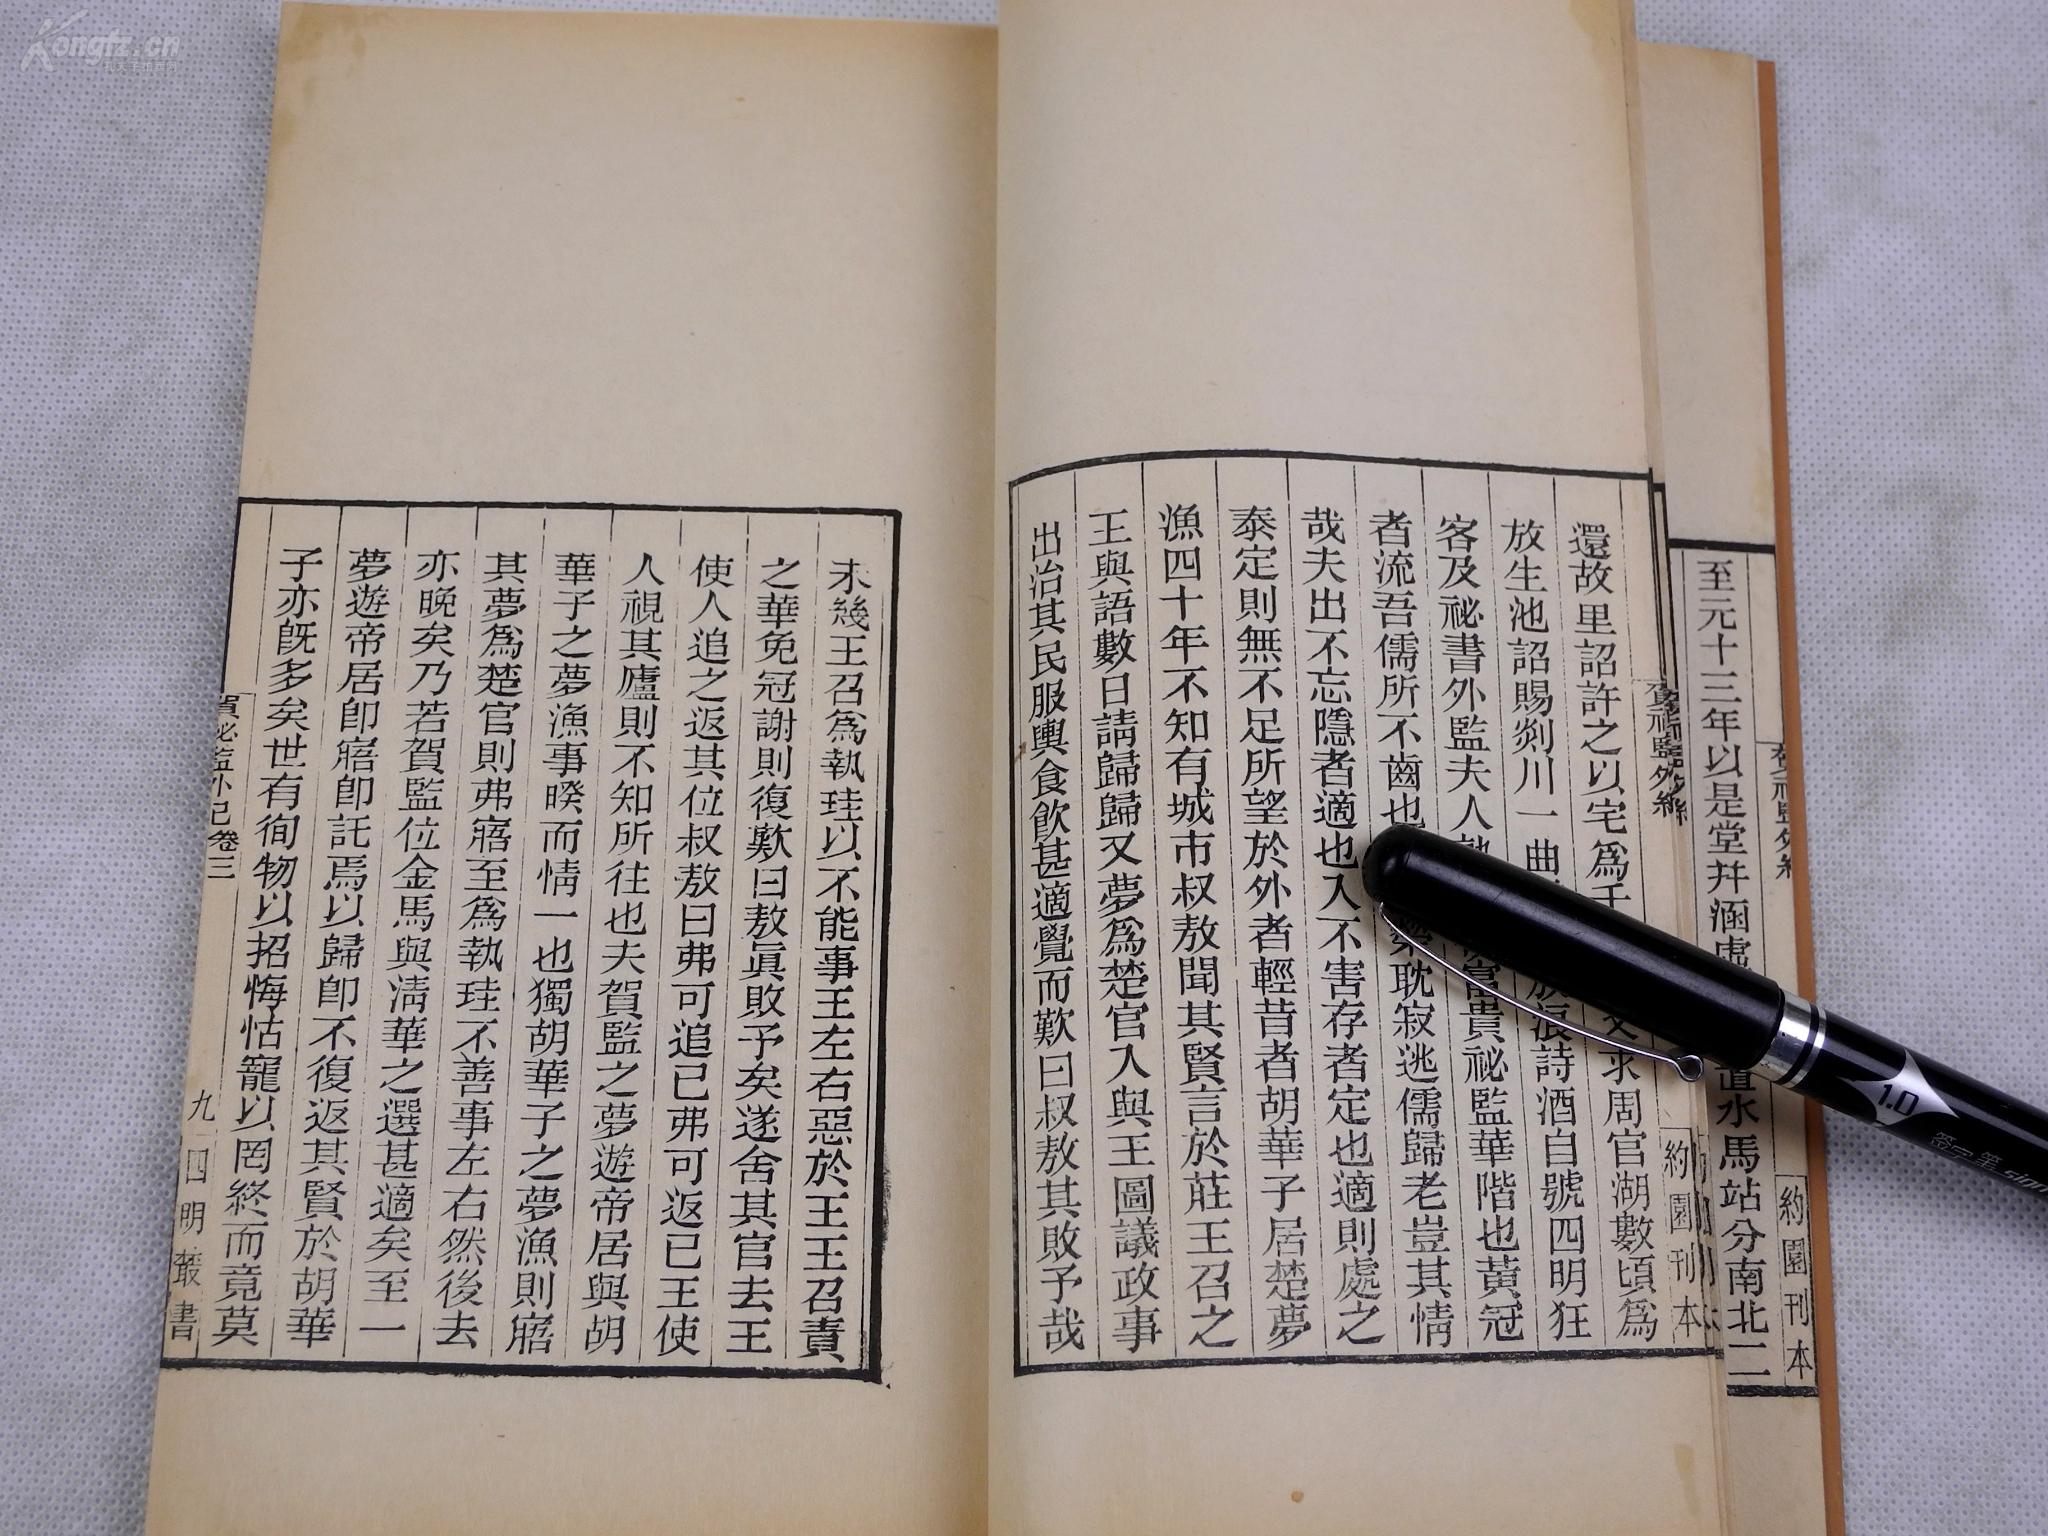 至元十三年以是堂幷涵虛
道水馬站分南北二
約園刊本
賀祕監外紀
約園刊本
還故里詔許之以宅爲千
求周官湖數頃爲
放生池詔賜剡川一曲
放浪詩酒自號四明狂
客及祕書外監夫人
富貴祕監華階也黃冠
者流吾儒所不齒也
禁耽寂逃儒歸老豈其情
哉夫出不忘隱者適也入不害存者定也適則處之
泰定則無不足所望於外者輕昔者胡華子居楚夢
漁四十年不知有城市叔敖聞其賢言於莊王召之
王與語數日請歸歸又夢爲楚官入與王圖議政事
出治其民服輿食飲甚適覺而歎曰叔敖其敗予哉
未幾王召爲執珪以不能事王左右惡於王王召責
之華免冠謝則復歎曰敖眞敗予矣遂舍其官去王
使人追之返其位叔敖曰弗可追已弗可返已王使
人視其廬則不知所往也夫賀監之夢遊帝居與胡
華子之夢漁事暌而情一也獨胡華子之夢漁則寤
其夢爲楚官則弗寤至爲執珪不善事左右然後去
亦晚矣乃若賀監位金馬與淸華之選甚適矣至一
夢遊帝居卽寤卽託焉以歸卽不復返其賢於胡華
子亦旣多矣世有徇物以招悔怙寵以罔終而竟莫
賀祕監外紀卷三
九
四明叢書
Kongfz.cn
1.0
签字笔